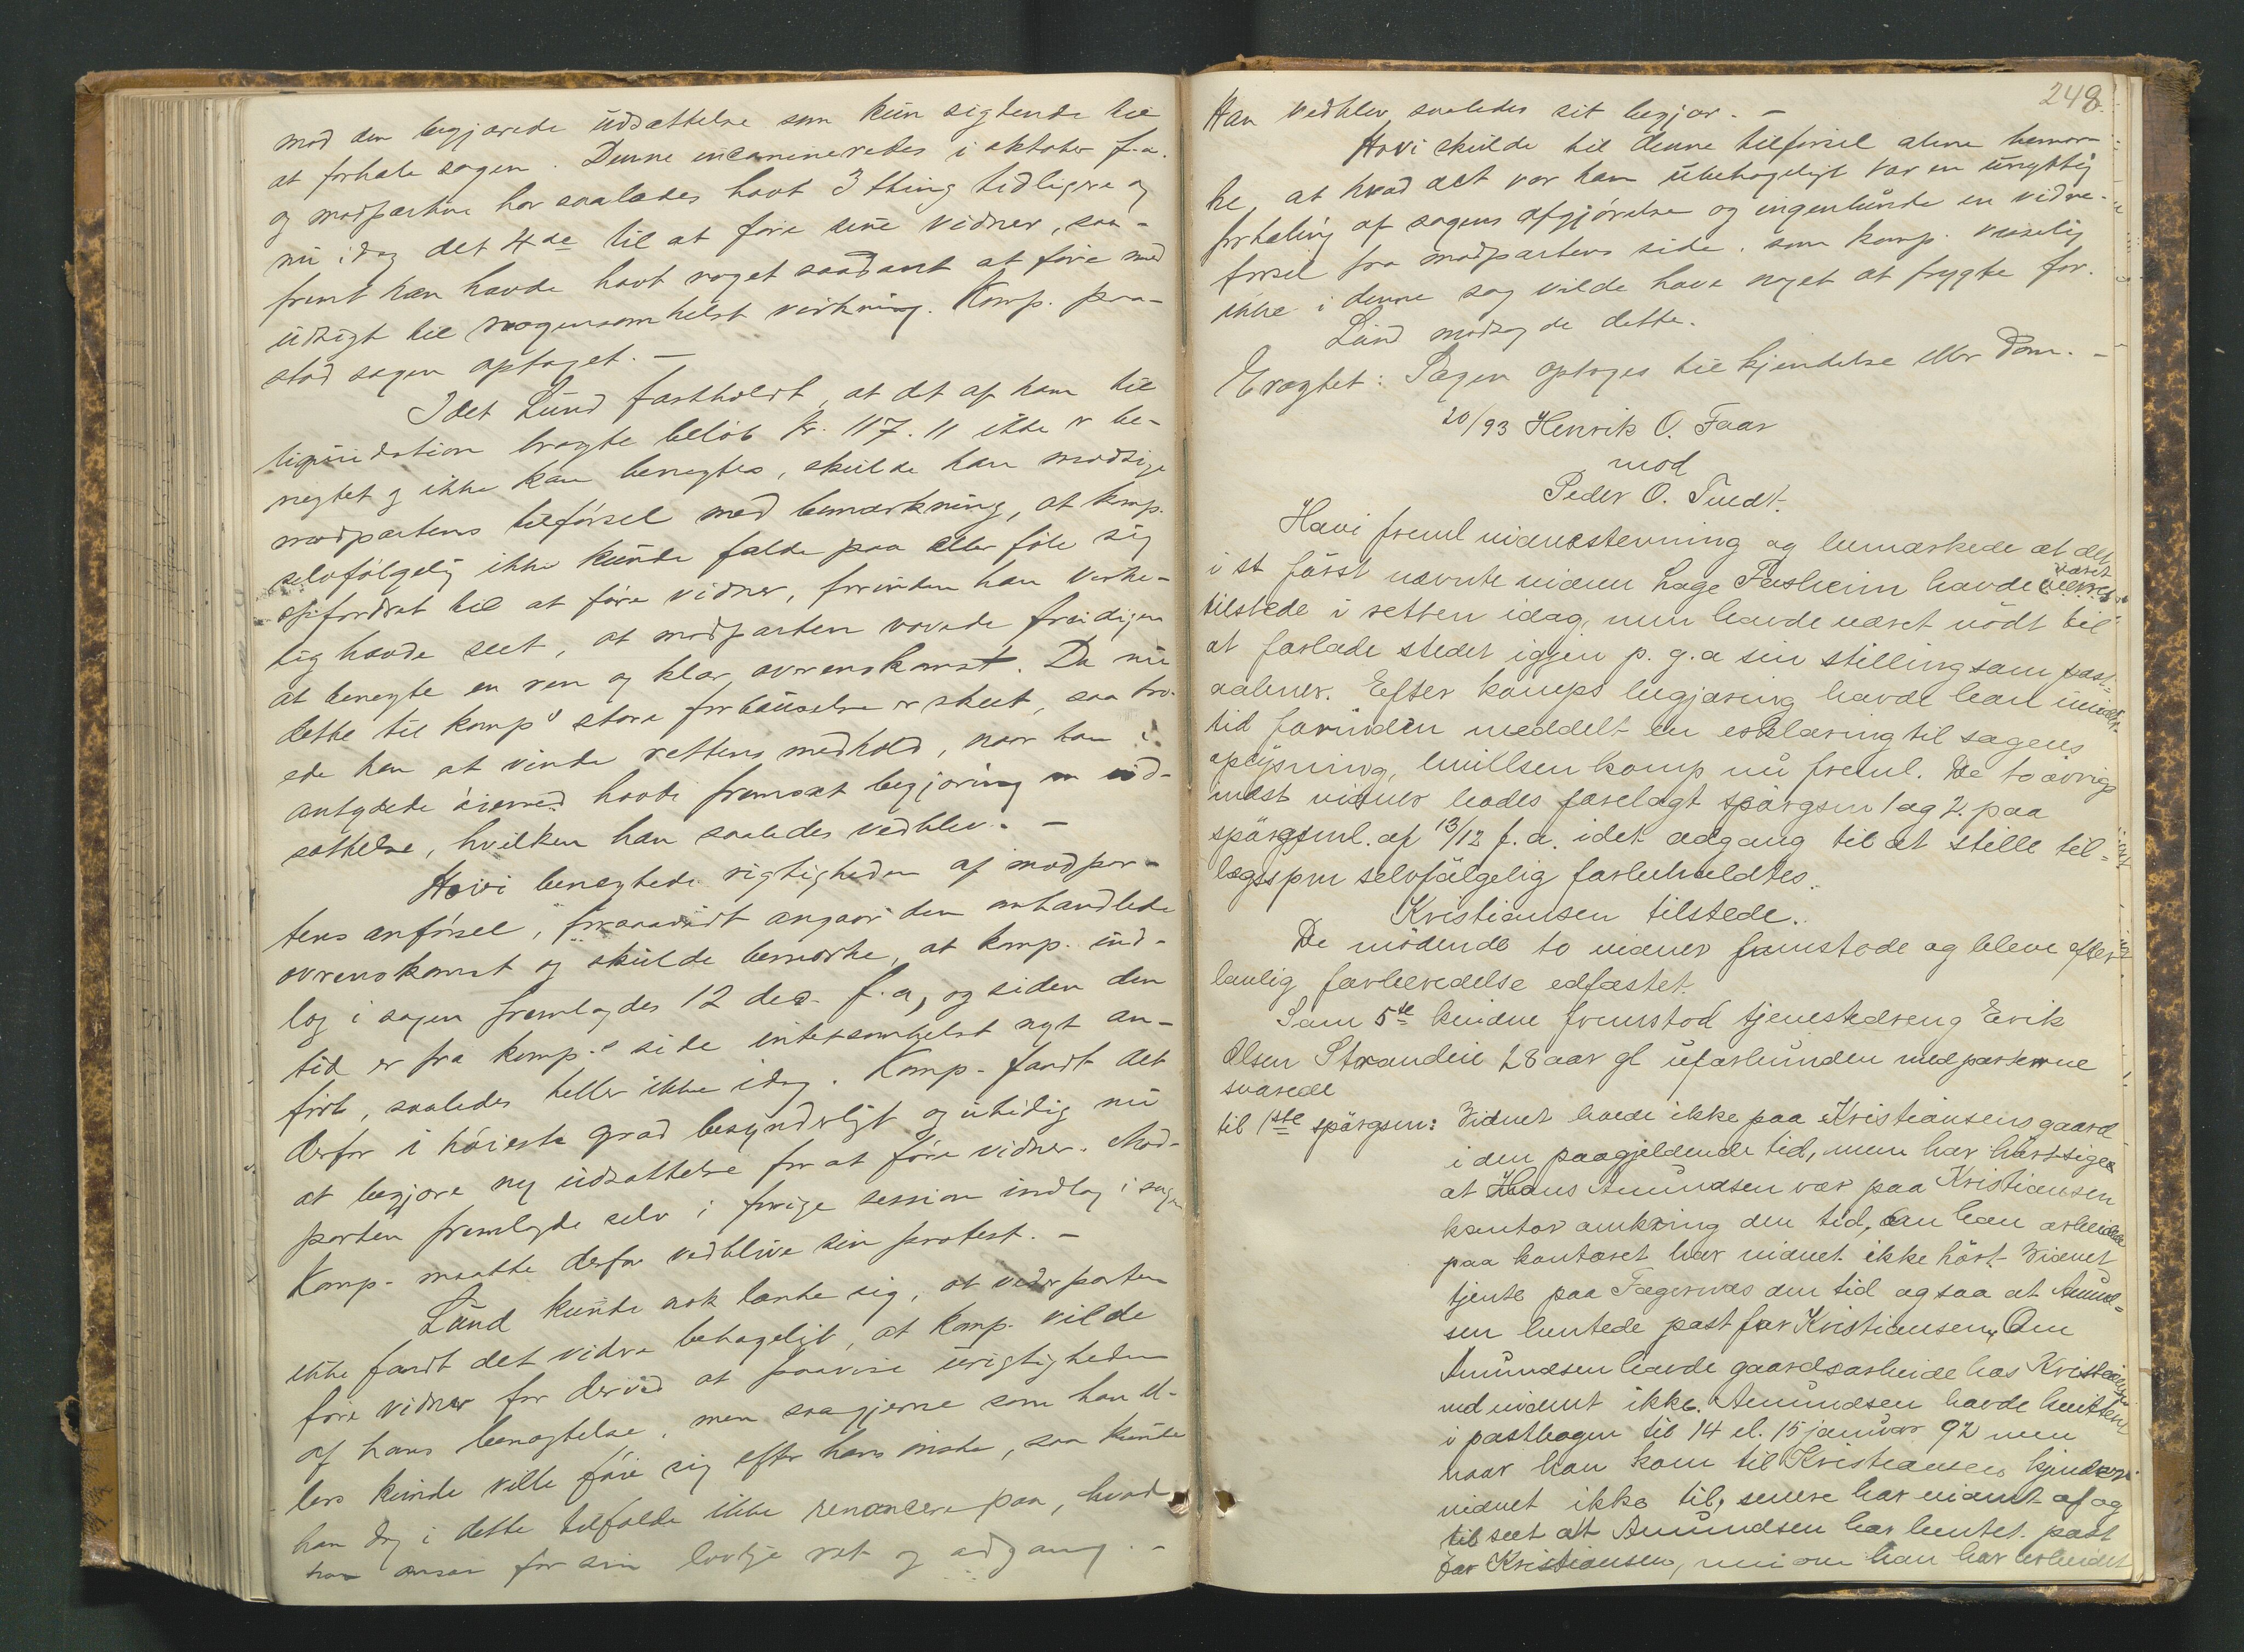 mod den begjærede udsættelse som kun sigtende til
at forhale sagen. Denne incamineredes i oktober f.a.
og modparten har saaledes havt 3 thing tidligere og
nu idag det 4de til at føre sine vidner, saa-
fremt han havde havt noget saadant at føre med
udsigt til nogensomhelst virkning. Komp. paa-
stod sagen optaget. –
Idet Lund fastholdt, at det af ham til
liquidation bragte beløb kr. 117.11 ikke er be-
negtet og ikke kan benegtes, skulde han modsige
modpartens tilførsel med bemærkning, at komp.
selvfølgelig ikke kunde falde paa eller føle sig
opfordret til at føre vidner, forinden han virke-
lig havde seet, at modparten vovede freidigen
at benegte en ren og klar overenskomst. Da nu
dette til komps store forbauselse er skeet, saa tro-
ede han at vinde rettens medhold, naar han i
antydede øiemed havde fremsat begjæring om ud-
sættelse, hvilken han saaledes vedblev. –
Hovi benægtede rigtigheden af modpar-
tens anførsel, forsaavidt angaar den omhandlede
overenskomst og skulde bemærke, at komp. ind-
læg i sagen fremlagdes 12 dec. f.a, og siden den
tid er fra komp.s side intetsomhelst nyt an-
ført, saaledes heller ikke idag. Komp. fandt det
derfor i høieste grad besynderligt og utidig nu
at begjære ny udsættelse for at føre vidner. Mod-
parten fremlagde selv i forrige session indlæg i sagen
Komp. maatte derfor vedblive sin protest. –
Lund kunde nok tænke sig, at vederparten
ikke fandt det videre behageligt, at komp. vilde
føre vidner for derved at paavise urigtigheden
af hans benægtelse, men saa gjerne som han el-
lers kunde ville føie sig efter hans ønske, saa kunde
han dog i dette tilfælde ikke renoncere paa, hvad
han ansaa for sin lovlige ret og adgang. –
248
Han vedblev saaledes sit begjær. –
Hovi skulde til denne tilførsel alene bemær-
ke, at hvad det var ham ubehageligt var en unyttig
forhaling af sagens afgjørelse og ingenlunde en vidne-
førsel fra modpartens side, som komp. visselig
ikke i denne sag vilde have noget at frygte for.
Lund modsagde dette.
Eragtet: Sagen optages til kjendelse eller Dom. –
20/93 Henrik O. Faar
mod
Peder O. Tuedt.
Hovi freml vidnestevning og bemærkede at det
i st først nævnte vidne Lage Fasheim havde været
tilstede i retten idag, men havde været nødt til
at forlade stedet igjen p. g. a sin stilling som post-
aabner. Efter komps begjæring havde han imidler-
tid forinden meddelt en erklæring til sagens
oplysning, hvilken komp nu freml. De to øvrige
mødt vidner bades forelagt spørgsm 1 og 2 paa
spørgsml. af 13/12 f.a. idet adgang til at stille til-
lægsspm selvfølgelig forbeholdtes.
Kristiansen tilstede.
De mødende to vidner fremstode og bleve efter
lovlig forberedelse edfæstet.
Som 5te vidne fremstod tjenestedreng Erik
Olsen Strandeie 28 aar gl uforbunden med parterne
svarede
til 1ste spørgsm: Vidnet boede ikke paa Kristiansens gaard
i den paagjeldende tid, men har hørt sige
at Hans Amundsen var paa Kristiansen
kontor omkring den tid, om han arbeidede
paa kontoret har vidnet ikke hørt. Vidnet
tjente paa Fagernæs den tid og saa at Amund-
sen hentede post for Kristiansen. Om
Amundsen havde gaardsarbeide hos Kristiansen
ved vidnet ikke. Amundsen havde kvittert
i postbogen til 14 el. 15 januar 92 men
naar han kom til Kristiansen kjender
vidnet ikke til, senere har vidnet af og
til seet at Amundsen har hentet post
for Kristiansen, men om han har arbeidet